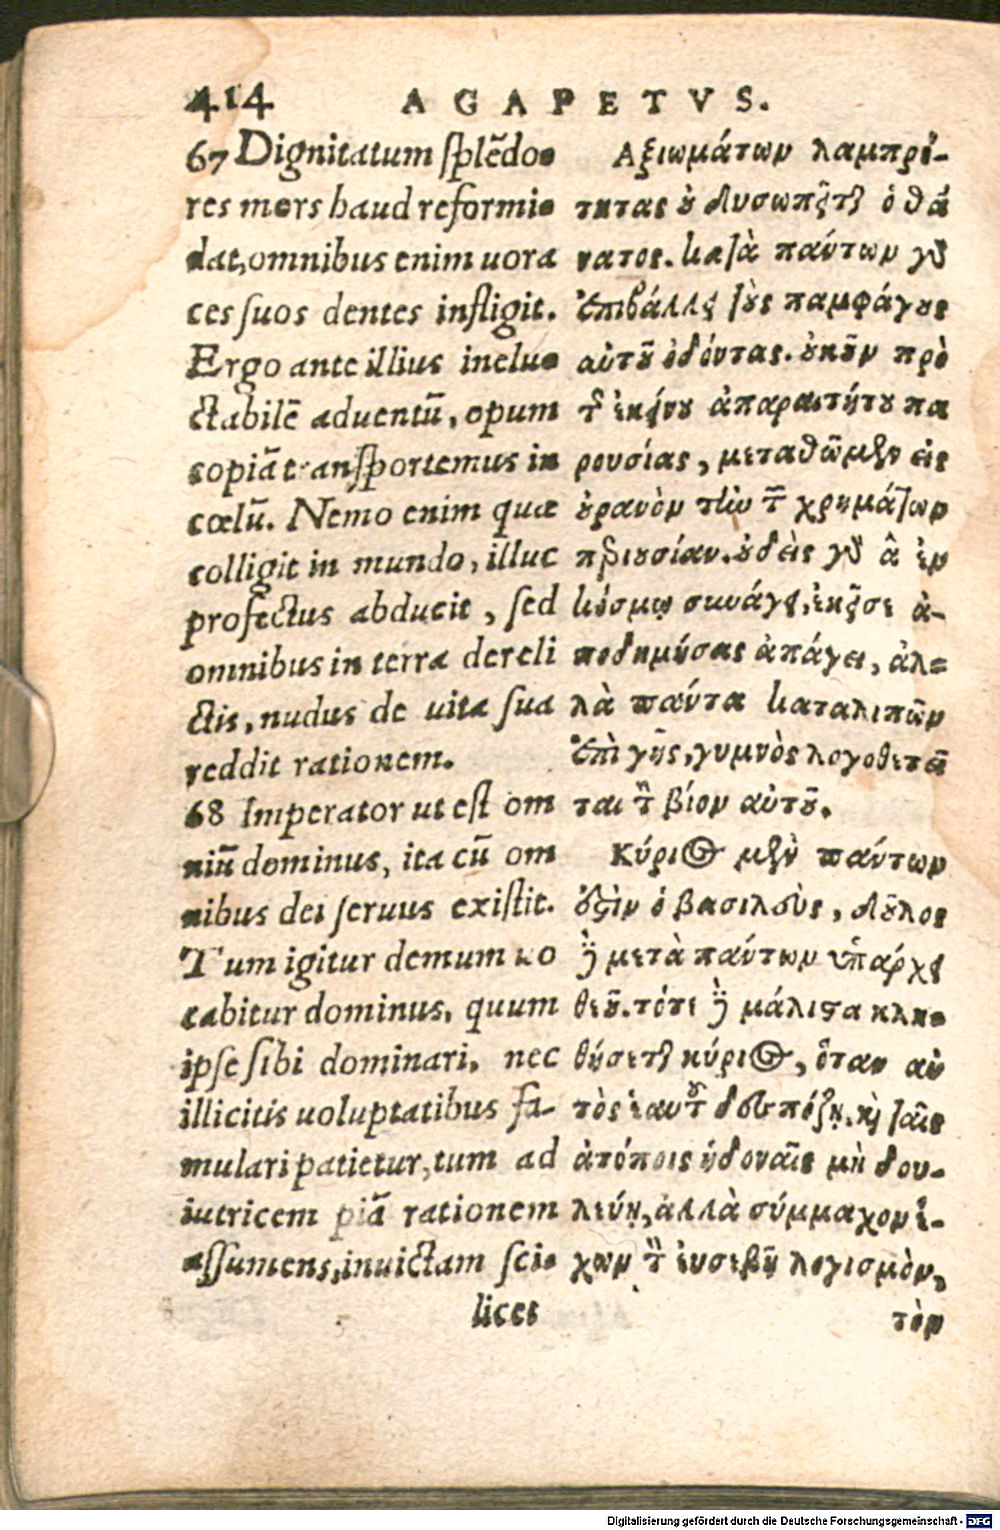 414 AGAPETVS.
67 Dignitatum splēdo-
res mors haud reformi-
dat, omnibus enim uora
ces suos dentes infligit.
Ergo ante illius inelu-
ctabilē aduentū, opum
copiā transportemus in
cœlū. Nemo enim quæ
colligit in mundo, illuc
profectus abducit, sed
omnibus in terra dereli
ctis, nudus de uita sua
reddit rationem.
68 Imperator ut est om
niū dominus, ita cū om
nibus dei seruus existit.
Tum igitur demum uo
cabitur dominus, quum
ipse sibi dominari, nec
illicitis uoluptatibus fa-
mulari patietur, tum ad
iutricem piā rationem
assumens, inuictam sci-
licet
Αξιωμάτων λαμπρό-
τητας ὀ δυσωπεῖται ὁ θά
νατος. κατὰ πάντων γὸ
ἐπιβάλλει τοὺς παμφάγους
αὐτοῦ ὀδόντας. οὐκοῦν πρὸ
τῆς ἐκείνου ἀπαραιτήτου πα
ρουσίας, μεταθῶμεν εἰς
οὐρανὸν τὴν τῶν χρημάτων
περιουσίαν. οὐδεὶς γὸ ἃ ἐν
κόσμῳ συνάγει, ἐκεῖσε ἀ-
ποδημήσας ἀπάγει, ἀλ-
λὰ πάντα καταλιπὼν
ἐπὶ γῆς, γυμνὸς λογοθετεῖ
ται τὸν βίον αὐτοῦ.
Κύριος μὲν πάντων
ἐστὶν ὁ βασιλεὺς, δοῦλος
δὲ μετὰ πάντων ὑπάρχει
θεοῦ. τότε δὲ μάλιστα κλη-
θήσεται κύριος, ὅταν αὐ
τὸς ἑαυτοῦ δεσπόζῃ. καὶ ταῖς
ἀτόποις ἡδοναῖς μὴ δου-
λεύῃ, ἀλλὰ σύμμαχον ἔ-
χων τὸν εὐσεβῆ λογισμὸν,
τὸν
Digitalisierung gefördert durch die Deutsche Forschungsgemeinschaft - DFG